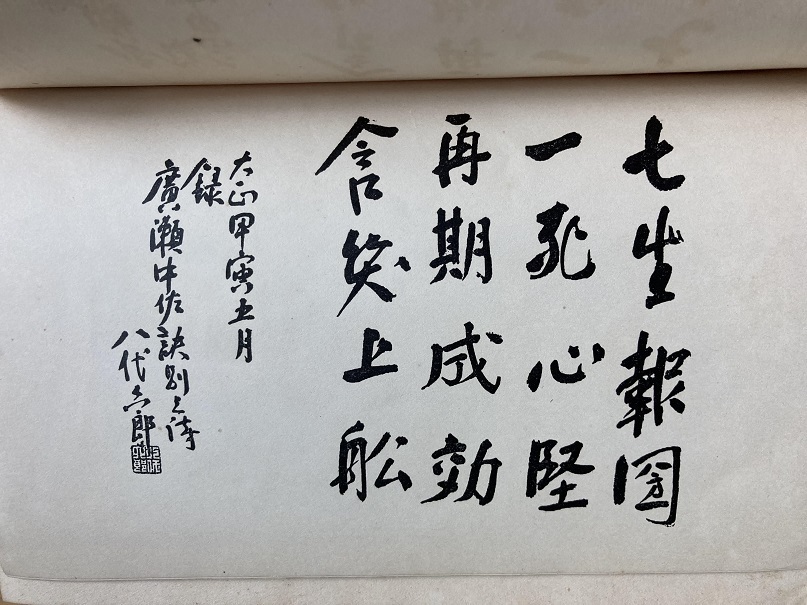 七生報国
一死心堅
再期成効
含笑上舩
大正甲寅五月
録
廣瀬中佐訣別之詩
八代六郎